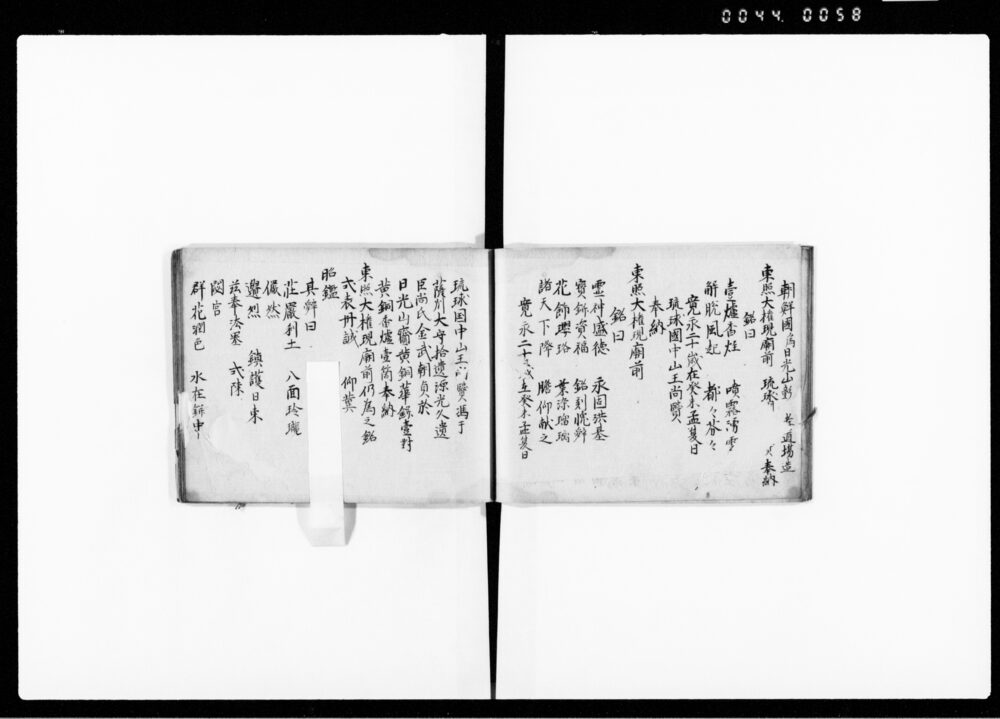 0044. 0058
朝鮮國為日光山 道場造
東照大権現廟前 琉球 奉納
銘曰
壹爐香炷 噴霧
解脱風起 郁々
寛永二十歳在癸未孟夏日
琉球國中山王尚賢
奉納
東照大権現廟前
銘曰
霊神盛徳 永固洪基
寶鉼資福 銘刻
花飾瓔珞 葉添瑠璃
諸天下降 瞻仰献之
寛永二十 癸未孟夏日
琉球国中山王尚賢馮于
薩州大守拾遺源光久遺
臣尚氏金武朝貞於
日光山齎黄銅華鉼壹對
黄銅香爐壹箇奉納
東照大権現廟前仍為之銘
式表丹誠 仰冀
昭鑑
其辞曰
荘嚴利土 八面玲瓏
儼然
鎮護日東
茲奉 式陳
閟宮
群花潤色 水在鉼中